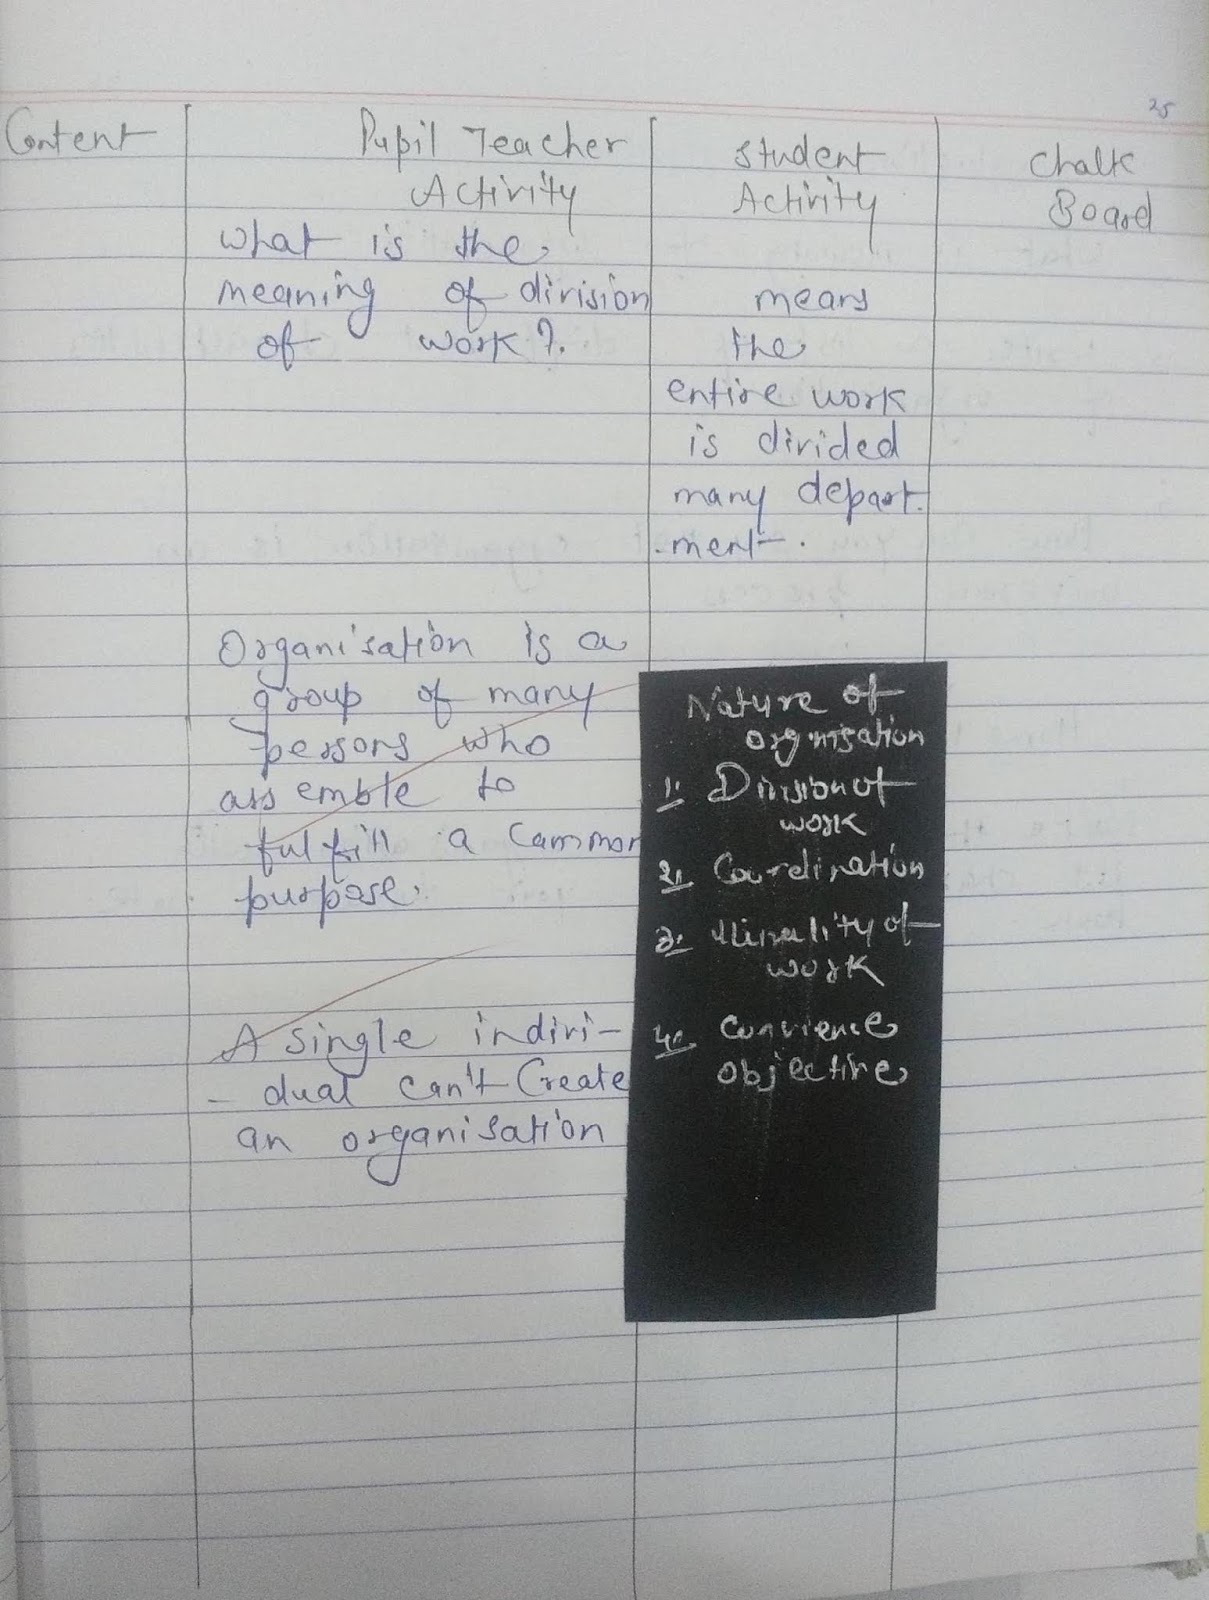 25
Content
Pupil Teacher
Activity
Student
Activity
Chalk
Board
what is the
meaning of division
of work?.
means
the
entire work
is divided
many depart.
.ment.
Organisation is a
group of many
persons who
assemble to
fulfill a Common
purpose.
A single indivi-
- dual can't Create
an organisation
Nature of
organisation
1. Division of
work
2. Coordination
3. of
work
4.
objective